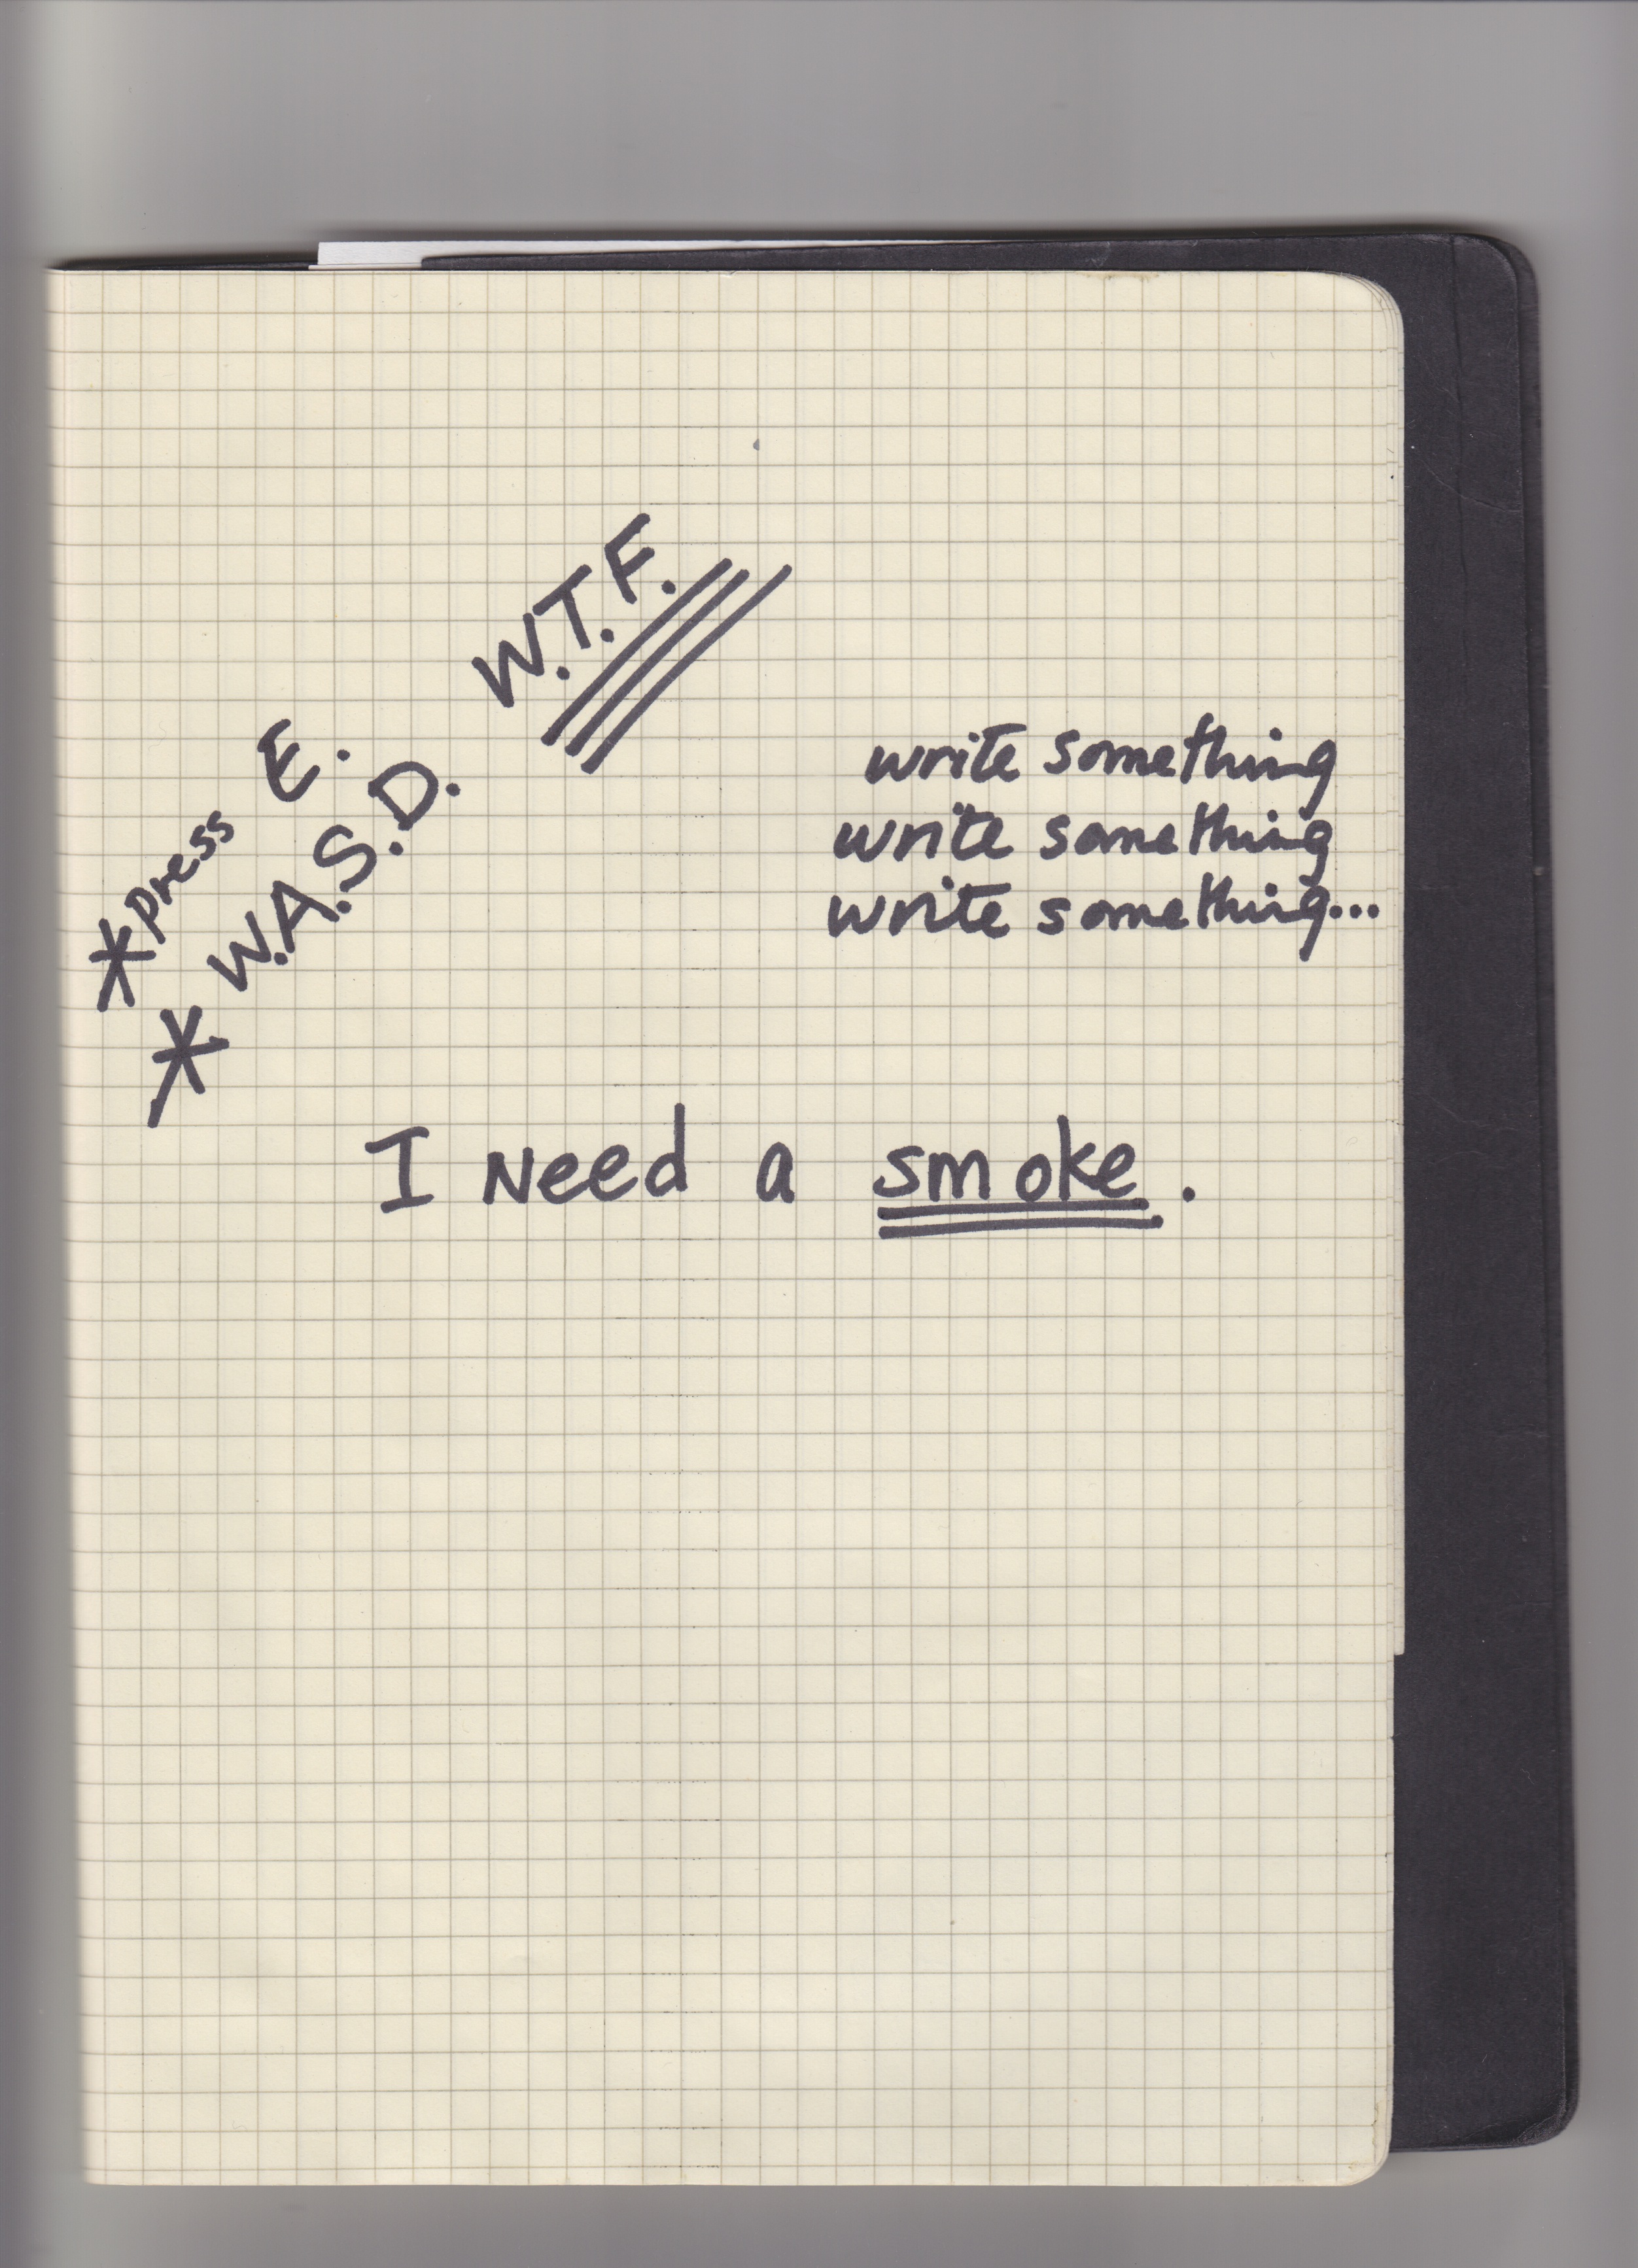 W.T.F.
* press E.
* W.A.S.D.
write something
write something
write something...
I Need a smoke.